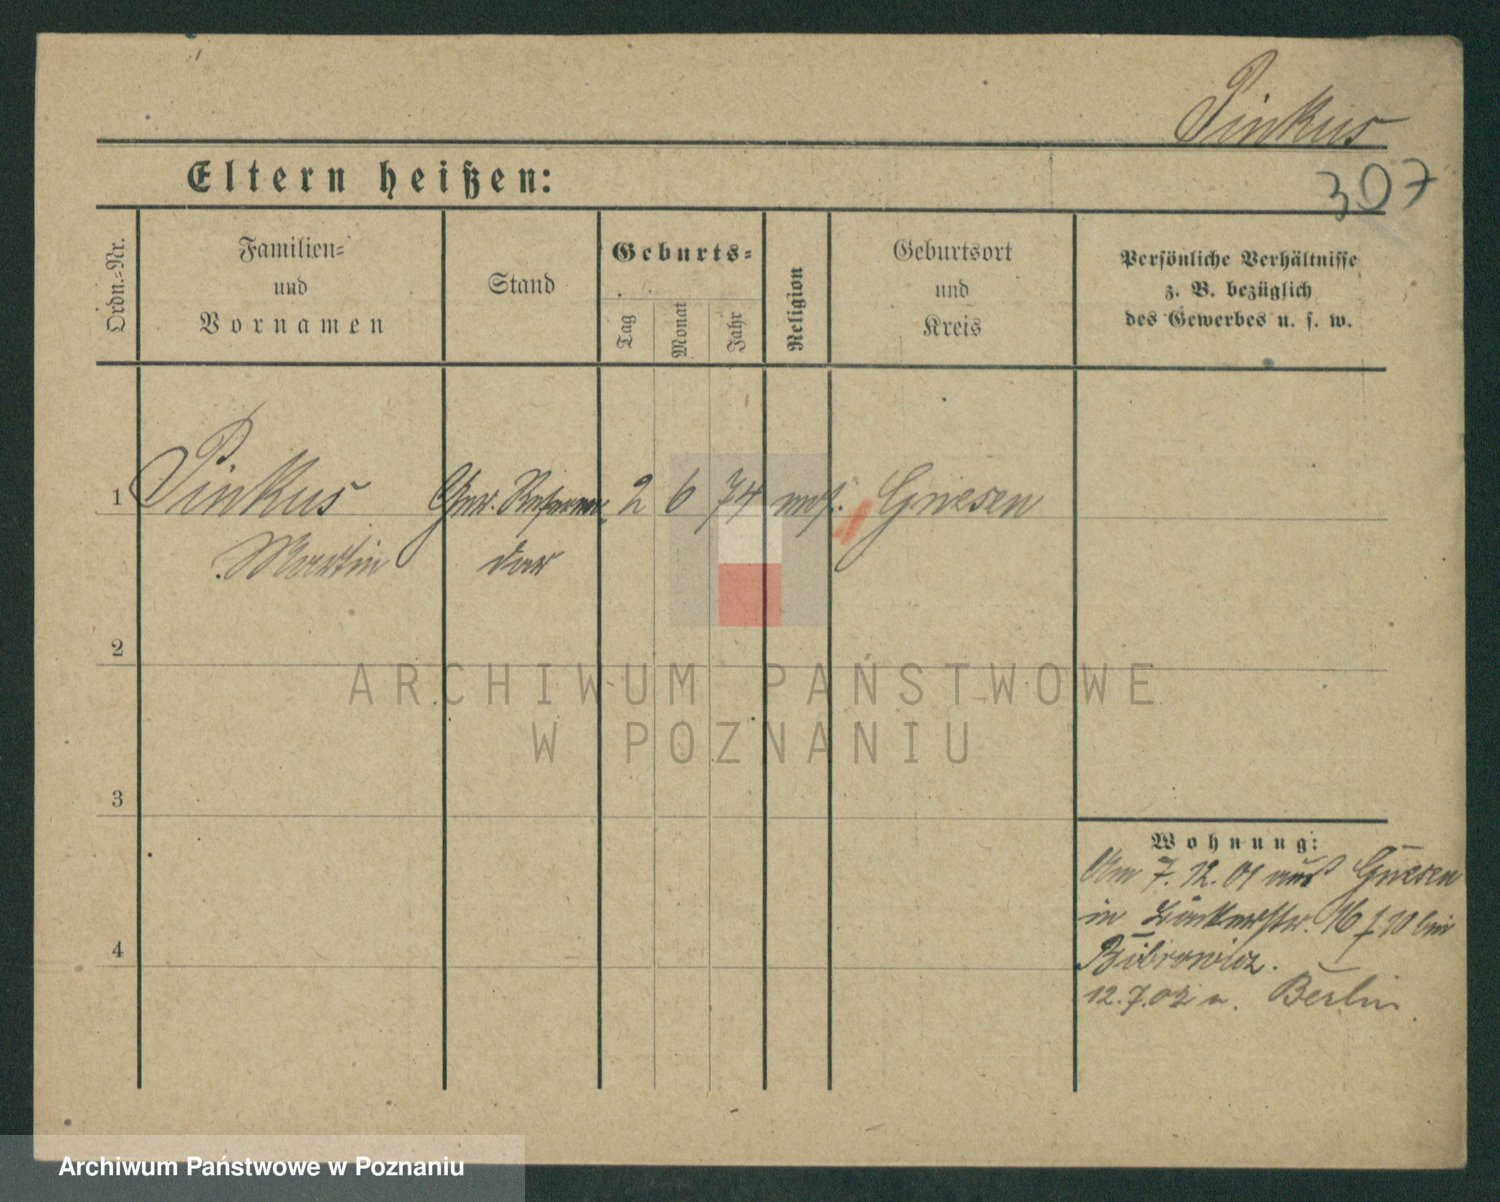 Pinkus
307
Eltern heißen:
Ordn.-Nr.
Familien-
und
Vornamen
Stand
Geburts-
Tag
Monat
Jahr
Religion
Geburtsort
und
Kreis
Persönliche Verhältnisse
z. B. bezüglich
des Gewerbes u. s. w.
1 Pinkus Ger. Referen- 2 6 74 mos. Gnesen
Martin dar
2
ARCHIWUM PAŃSTWOWE
W POZNANIU
3
Wohnung:
Am 7.12.01 aus Gnesen
in 16 bei
Bibrowicz.
4
12.7.02 n. Berlin
Archiwum Państwowe w Poznaniu